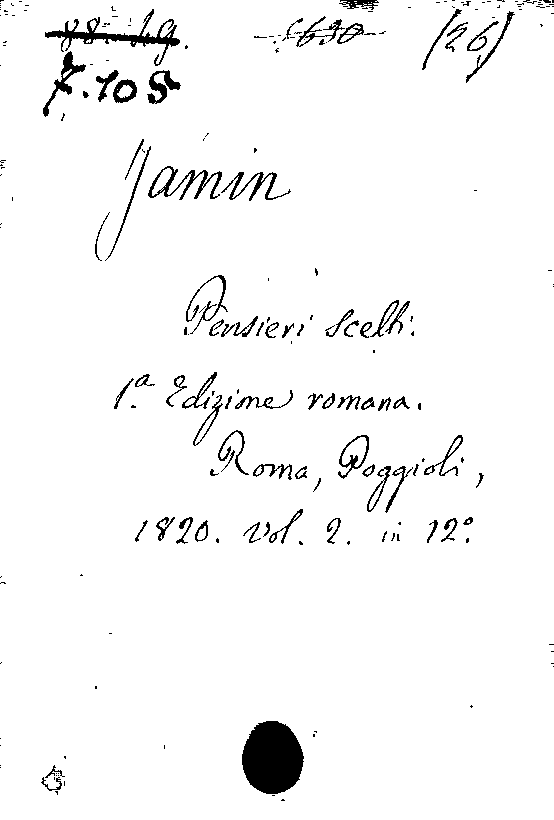 (26)
7.105
Jamin
Pensieri scelti.
1.ª Edizione romana.
Roma, Poggioli,
1820. Vol. 2. in 12º